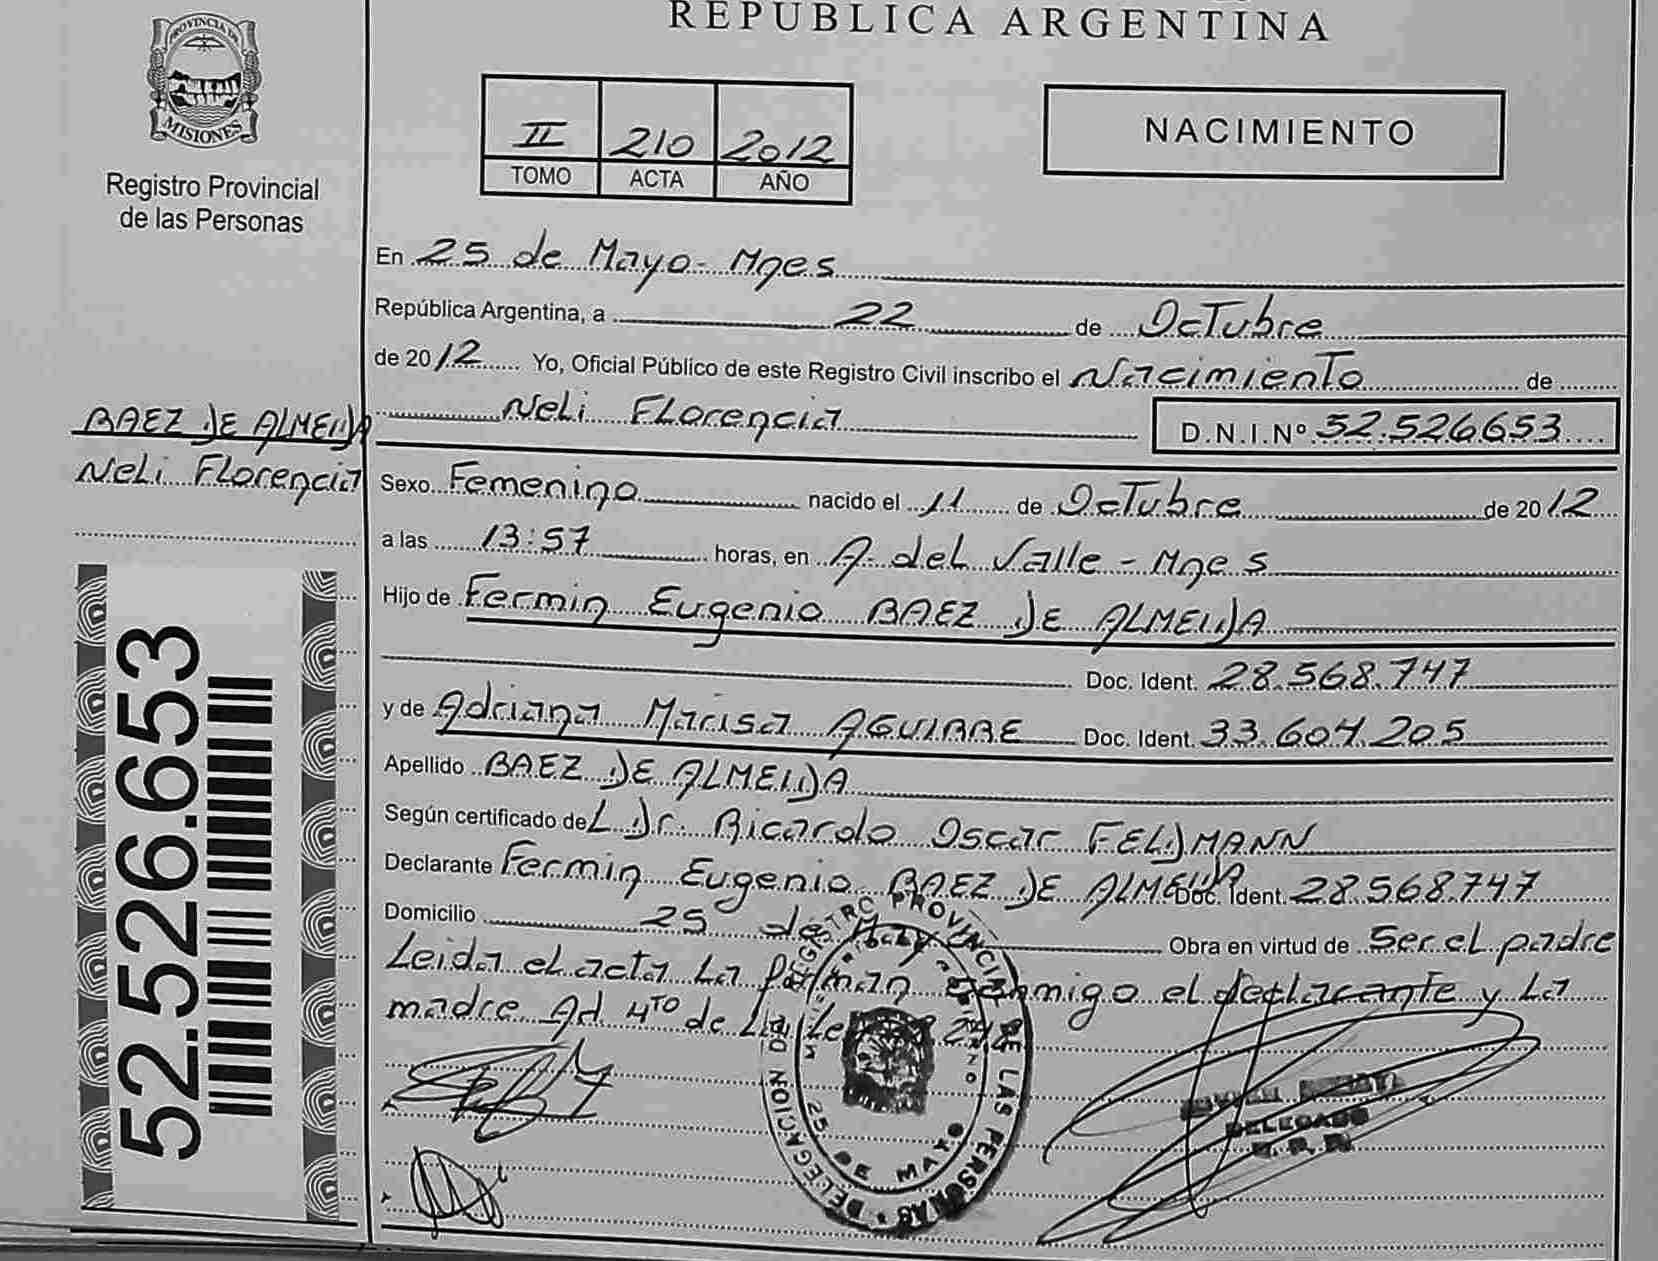 REPUBLICA ARGENTINA
PROVINCIA DE
MISIONES
Registro Provincial
de las Personas
II 210 2012
TOMO ACTA AÑO
NACIMIENTO
En 25 de Mayo - Mnes
República Argentina, a 22 de Octubre
de 2012 Yo, Oficial Público de este Registro Civil inscribo el Nacimiento de
Neli Florencia D.N.I.Nº 52.526653
BAEZ DE ALMEIDA
Neli Florencia
Sexo Femenino nacido el 11 de Octubre de 2012
a las 13:57 horas, en A. del Valle - Mnes
Hijo de Fermin Eugenio BAEZ DE ALMEIDA
Doc. Ident. 28.568.747
y de Adriana Marisa AGUIRRE Doc. Ident. 33.604.205
Apellido BAEZ DE ALMEIDA
Según certificado del Dr. Ricardo Oscar FELDMANN
Declarante Fermin Eugenio BAEZ DE ALMEIDA Doc. Ident. 28.568.747
Domicilio 25 de Mayo Obra en virtud de Ser el padre
Leida el acta La firman conmigo el declarante y La
madre Ad 4TO de La Ley
52.526.653
REGISTRO PROVINCIAL DE LAS PERSONAS
DELEGACION
25 DE MAYO
DELEGADO